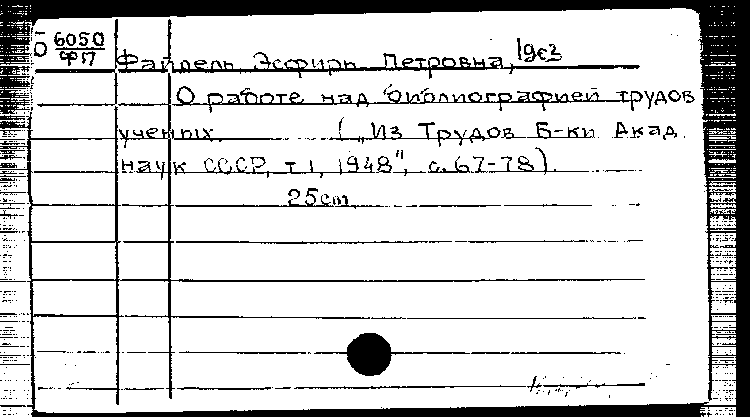 Б 6050
ФП
Файдель, Эсфирь Петровна,
О работе над библиографией трудов
ученых. („Из Трудов Б-ки Акад.
наук СССР, т. I, 1948", с. 67-78).
25cm.